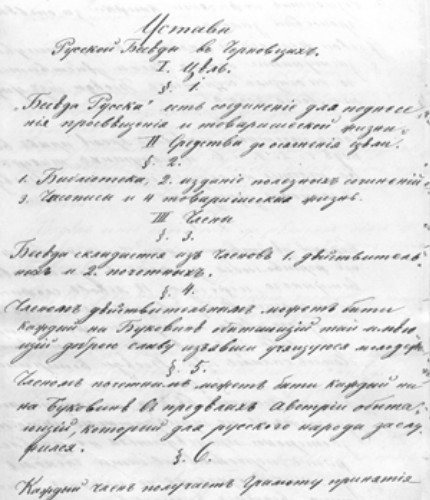 Уставы
Русской Бесѣды въ Черновцяхъ.
I. Цѣль.
§. 1.
„Бесѣда Руска" есть соединеніе для поднесе-
нія просвѣщенія и товаришеской жизни.
II Средства до осягненія цѣли.
§. 2.
1. Библіотека, 2. изданіе полезныхъ сочиненій
3. Часописи и 4 товаришеская жизнь.
III Члены
§. 3.
Бесѣда складаєтся изъ членовъ 1. дѣйствитель-
ныхъ и 2. почетныхъ.
§. 4.
Членомъ дѣйствительнымъ можетъ бути
каждый на Буковинѣ обитающій
щій доброю славу изъявши учащуюся
§. 5.
Членомъ почетнымъ можетъ бути каждый
на Буковинѣ въ предѣлахъ Австріи обита-
ющій, который для русского народа заслу-
жился.
§. 6.
Каждый членъ получаєтъ грамоту принятія